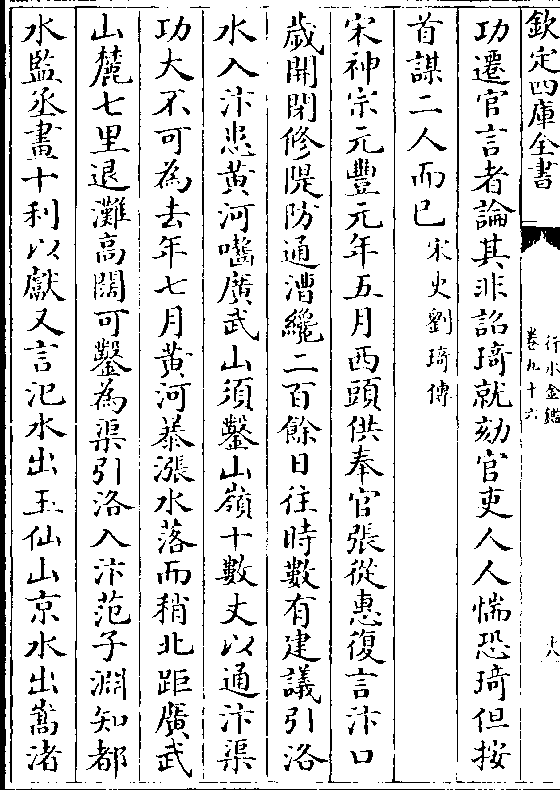 欽定四庫全書
行水金鑑
卷九十六
功遷官言者論其非詔琦就劾官吏人人惴恐琦但按
首謀二人而已宋史劉琦傳
宋神宗元豐元年五月西頭供奉官張從惠復言汴口
歲開閉修隄防通漕纔二百餘日往時數有建議引洛
水入汴患黃河嚙廣武山須鑿山嶺十數丈以通汴渠
功大不可為去年七月黃河暴漲水落而稍北距廣武
山麓七里退灘高闊可鑿為渠引洛入汴范子淵知都
水監丞畫十利以獻又言汜水出玉仙山京水出嵩渚